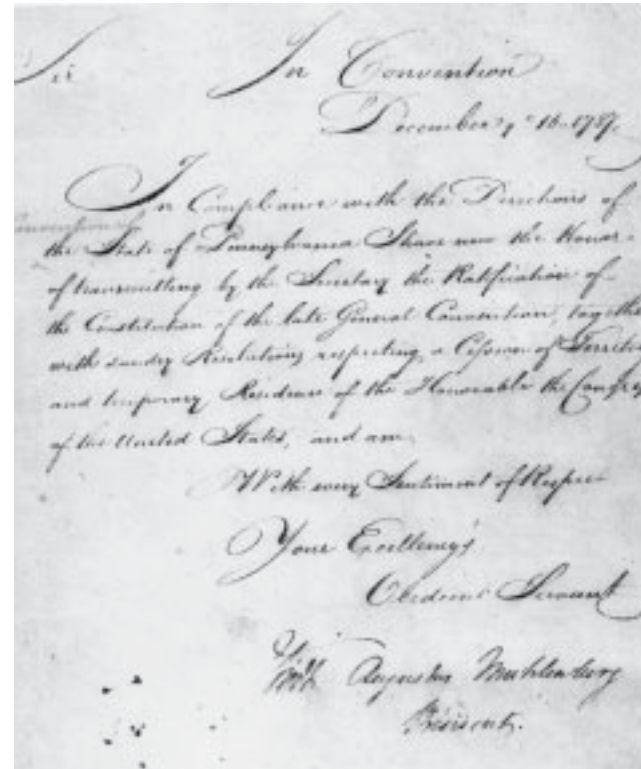 Sir
In Convention
December 16. 1787.
In Compliance with the Directions of
Convention of
the State of Pennsylvania I have now the Honor
of transmitting by the Secretary the Ratification of
the Constitution of the late General Convention, together
with sundry Resolutions respecting a Cession of Territo
and temporary Residence of the Honorable the Congre
of the United States, and am
With every Sentiment of Respec
Your Excellency's
Obedient Servant
Augustus Muhlenberg
President.